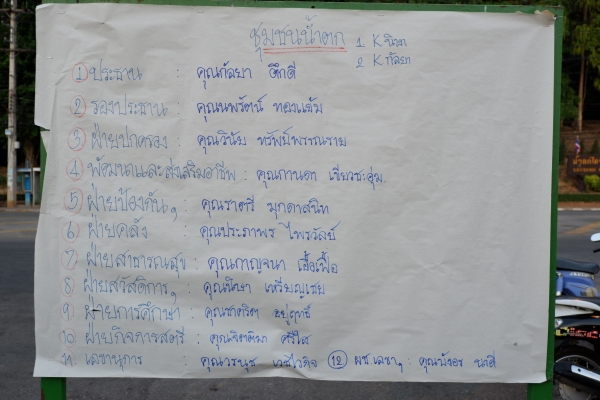 ชุมชนน้ำตก
1. K นิษา
2. K กัลยา
① ประธาน : คุณกัลยา ดีกดี
② รองประธาน : คุณนพรัตน์ ทองแจ้ม
③ ฝ่ายปกครอง : คุณวินัย ทรัพย์พรรณราย
④ พัฒนาและส่งเสริมอาชีพ : คุณกานดา เขียวชะอุ่ม
⑤ ฝ่ายป้องกันฯ : คุณราตรี มุกดาสนิท
⑥ ฝ่ายคลัง : คุณประภาพร ไพรวัลย์
⑦ ฝ่ายสาธารณสุข : คุณกาญจนา เอื้อเฟื้อ
8 ฝ่ายสวัสดิการฯ : คุณนิษา เหรียญเชย
9 ฝ่ายการศึกษา : คุณชาคริต อยู่ฤทธิ์
10 ฝ่ายกิจการสตรี : คุณจิตติมา ศรีใส
11 เลขานุการ : คุณวรนุช เวชไวกิจ ⑫ ผช.เลขาฯ : คุณบังอร